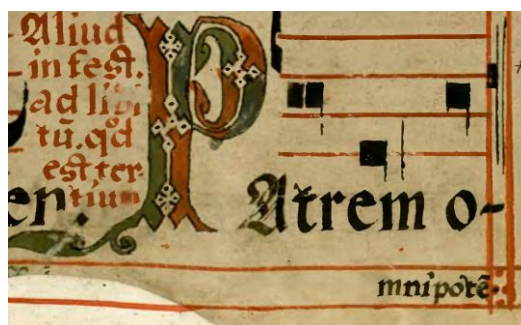 Aliud
in fest.
ad libi
tũ. qd
est ter
tium
en.
PAtrem o-
mnipotẽ